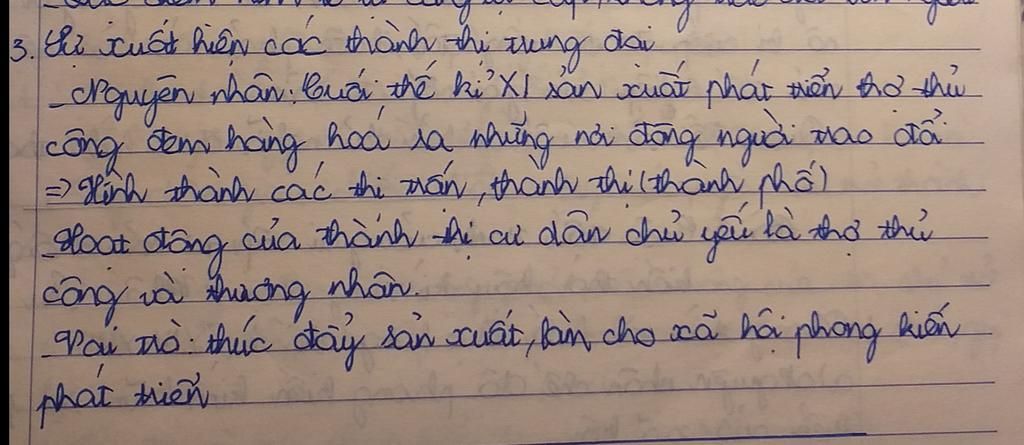 3. Sự xuất hiện các thành thị trung đại
- Nguyên nhân: Cuối thế kỉ XI sản xuất phát triển thợ thủ
công đem hàng hoá ra những nơi đông người trao đổi
=> Hình thành các thị trấn, thành thị (thành phố)
- Hoạt động của thành thị cư dân chủ yếu là thợ thủ
công và thương nhân.
- Vai trò: thúc đẩy sản xuất, làm cho xã hội phong kiến
phát triển